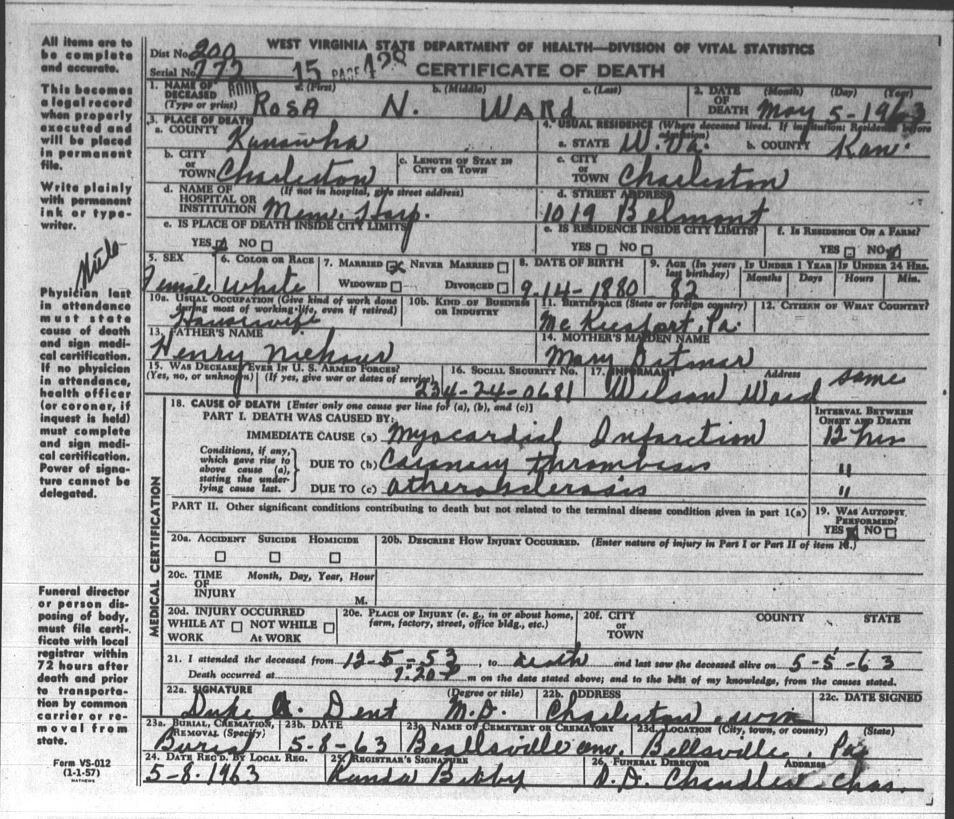 WEST VIRGINIA STATE DEPARTMENT OF HEALTH—DIVISION OF VITAL STATISTICS
Dist No. 200
Serial No. 772 BOOK 15 PAGE 428 CERTIFICATE OF DEATH
All items are to be complete and accurate.
This becomes a legal record when properly executed and will be placed in permanent file.
Write plainly with permanent ink or type-writer.
Physician last in attendance must state cause of death and sign medi-cal certification. If no physician in attendance, health officer (or coroner, if inquest is held) must complete and sign medi-cal certification. Power of signa-ture cannot be delegated.
Funeral director or person dis-posing of body, must file certi-ficate with local registrar within 72 hours after death and prior to transporta-tion by common carrier or re-moval from state.
Form VS-012
(1-1-57)
MATHEWS
1. NAME OF DECEASED (Type or print) a. (First) b. (Middle) c. (Last)
ROSA N. WARD
2. DATE OF DEATH (Month) (Day) (Year)
May 5-1963
3. PLACE OF DEATH
a. COUNTY Kanawha
4. USUAL RESIDENCE (Where deceased lived. If institution: Residence before admission)
a. STATE W. Va. b. COUNTY Kan.
b. CITY OR TOWN Charleston
c. LENGTH OF STAY IN CITY OR TOWN
c. CITY OR TOWN Charleston
d. NAME OF HOSPITAL OR INSTITUTION (If not in hospital, give street address)
Mem. Hosp.
d. STREET ADDRESS
1019 Belmont
e. IS PLACE OF DEATH INSIDE CITY LIMITS?
YES NO
e. IS RESIDENCE INSIDE CITY LIMITS?
YES NO
f. IS RESIDENCE ON A FARM?
YES NO
5. SEX Female
6. COLOR OR RACE White
7. MARRIED NEVER MARRIED
WIDOWED DIVORCED
8. DATE OF BIRTH 9-14-1880
9. AGE (In years last birthday) 82
IF UNDER 1 YEAR Months Days
IF UNDER 24 HRS. Hours Min.
10a. USUAL OCCUPATION (Give kind of work done during most of working life, even if retired)
Housewife
10b. KIND OF BUSINESS OR INDUSTRY
11. BIRTHPLACE (State or foreign country)
McKeesport, Pa.
12. CITIZEN OF WHAT COUNTRY?
13. FATHER'S NAME
Henry
14. MOTHER'S MAIDEN NAME
Mary
15. WAS DECEASED EVER IN U. S. ARMED FORCES?
(Yes, no, or unknown) (If yes, give war or dates of service)
16. SOCIAL SECURITY NO.
234-24-0681
17. INFORMANT Address
Wilson Ward same
18. CAUSE OF DEATH [Enter only one cause per line for (a), (b), and (c)]
INTERVAL BETWEEN ONSET AND DEATH
PART I. DEATH WAS CAUSED BY:
IMMEDIATE CAUSE (a) Myocardial Infarction 12 hrs
Conditions, if any, which gave rise to above cause (a), stating the under-lying cause last.
DUE TO (b) Coronary thrombosis "
DUE TO (c) atherosclerosis "
PART II. Other significant conditions contributing to death but not related to the terminal disease condition given in part 1(a)
19. WAS AUTOPSY PERFORMED?
YES NO
MEDICAL CERTIFICATION
20a. ACCIDENT SUICIDE HOMICIDE
20b. DESCRIBE HOW INJURY OCCURRED. (Enter nature of injury in Part I or Part II of item 18.)
20c. TIME OF INJURY Month, Day, Year, Hour
M.
20d. INJURY OCCURRED
WHILE AT WORK NOT WHILE AT WORK
20e. PLACE OF INJURY (e. g., in or about home, farm, factory, street, office bldg., etc.)
20f. CITY OR TOWN COUNTY STATE
21. I attended the deceased from 12-5-53, to death and last saw the deceased alive on 5-5-63
Death occurred at 7:20 P m on the date stated above; and to the best of my knowledge, from the causes stated.
22a. SIGNATURE (Degree or title)
Duke A. Dent M.D.
22b. ADDRESS
Charleston
22c. DATE SIGNED
23a. BURIAL, CREMATION, REMOVAL (Specify)
Burial
23b. DATE
5-8-63
23c. NAME OF CEMETERY OR CREMATORY
Beallsville cem.
23d. LOCATION (City, town, or county) (State)
Bellsville, Pa
24. DATE REC'D. BY LOCAL REG.
5-8-1963
25. REGISTRAR'S SIGNATURE
Bibby
26. FUNERAL DIRECTOR ADDRESS
Chandler Chas.